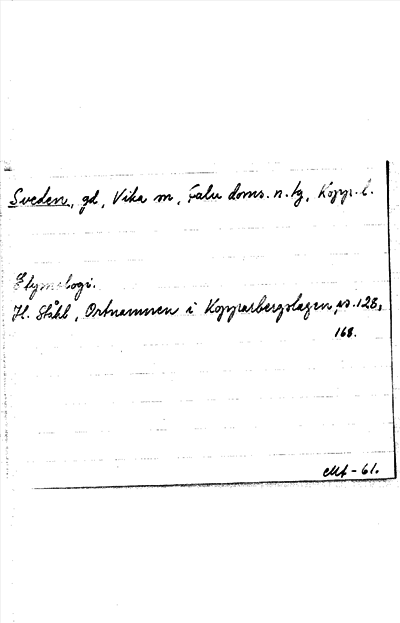 Sveden, gd, Vika sn, Falu doms. n. tg, Kopp. l.
Etymologi.
H. Ståhl, Ortnamnen i Kopparbergslagen, s. 128,
168.
-61.